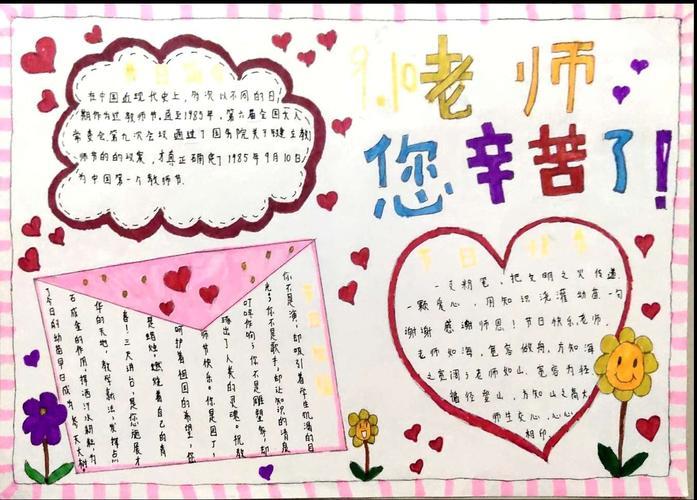 9.10老师
您辛苦了!
在中国近现代史上,多次以不同的日
期作为过教师节。直至1985年,第六届全国人大
常委会第九次会议通过了国务院关于建立教
师节的的议案,才真正确定了1985年9月10日
为中国第一个教师节.
节日快乐
一支粉笔,把文明之火传递
一颗爱心,用知识浇灌幼苗一句
谢谢 感谢师恩!节日快乐老师。
老师如海,宽容做舟,方知海
之宽阔;老师如山,宽容为径
循径登山,方知山之高大
师生交心,心心
相印.
节日祝福
你不是演,却吸引着学生饥渴的目
光;你不是歌手,却让知识的清泉
叮咚作响;你不是雕塑,却
琢出了人类的灵魂。祝教
师节快乐。你是园丁,
呵护着祖国的希望,您
是蜡烛,燃烧着自己的青
春!三尺讲台,是你施展才
华的天地,教学新法,发挥点
石成金的作用,挥洒汗水耕耘,为
了今日的幼苗早日成为参天大树